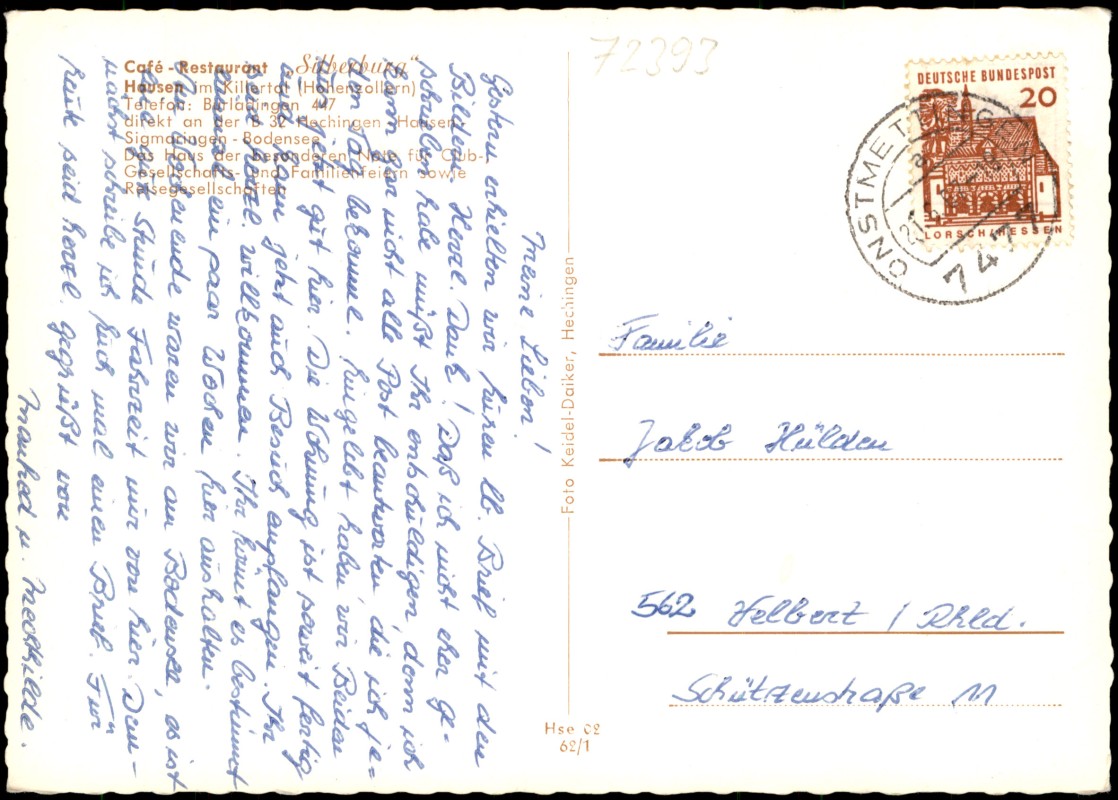 72393
Café-Restaurant „Silberburg“
Hausen im Killertal (Hohenzollern)
Telefon: Burladingen 447
direkt an der B 32 Hechingen-Hausen-
Sigmaringen-Bodensee
Das Haus der besonderen Note für Club-
Gesellschafts- und Familienfeiern sowie
Reisegesellschaften
Meine Lieben!
Gestern erhielten wir Euren lb. Brief mit den
Bildern. Herzl. Dank! Daß ich nicht eher ge-
schrieben habe müßt Ihr entschuldigen, denn ich
kann gar nicht alle Post beantworten, die ich je-
den Tag bekomme. Eingelebt haben wir Beiden
uns jetzt gut hier. Die Wohnung ist soweit fertig
und können jetzt auch Besuch empfangen. Ihr
seid herzl. willkommen. Ihr könnt es bestimmt
ein paar Wochen hier aushalten.
Am Wochenende waren wir am Bodensee, es ist
Stunde Fahrzeit nur von hier. Dem-
nächst schreibe ich Euch mal einen Brief. Für
heute seid herzl. gegrüßt von
Manfred u. Mechtilde.
Foto Keidel-Daiker, Hechingen
Hse 02
62/1
DEUTSCHE BUNDESPOST
20
LORSCH/HESSEN
ONSTMETTINGEN
7471
Familie
Jakob Hülden
562 Velbert / Rhld.
Schützenstraße 11